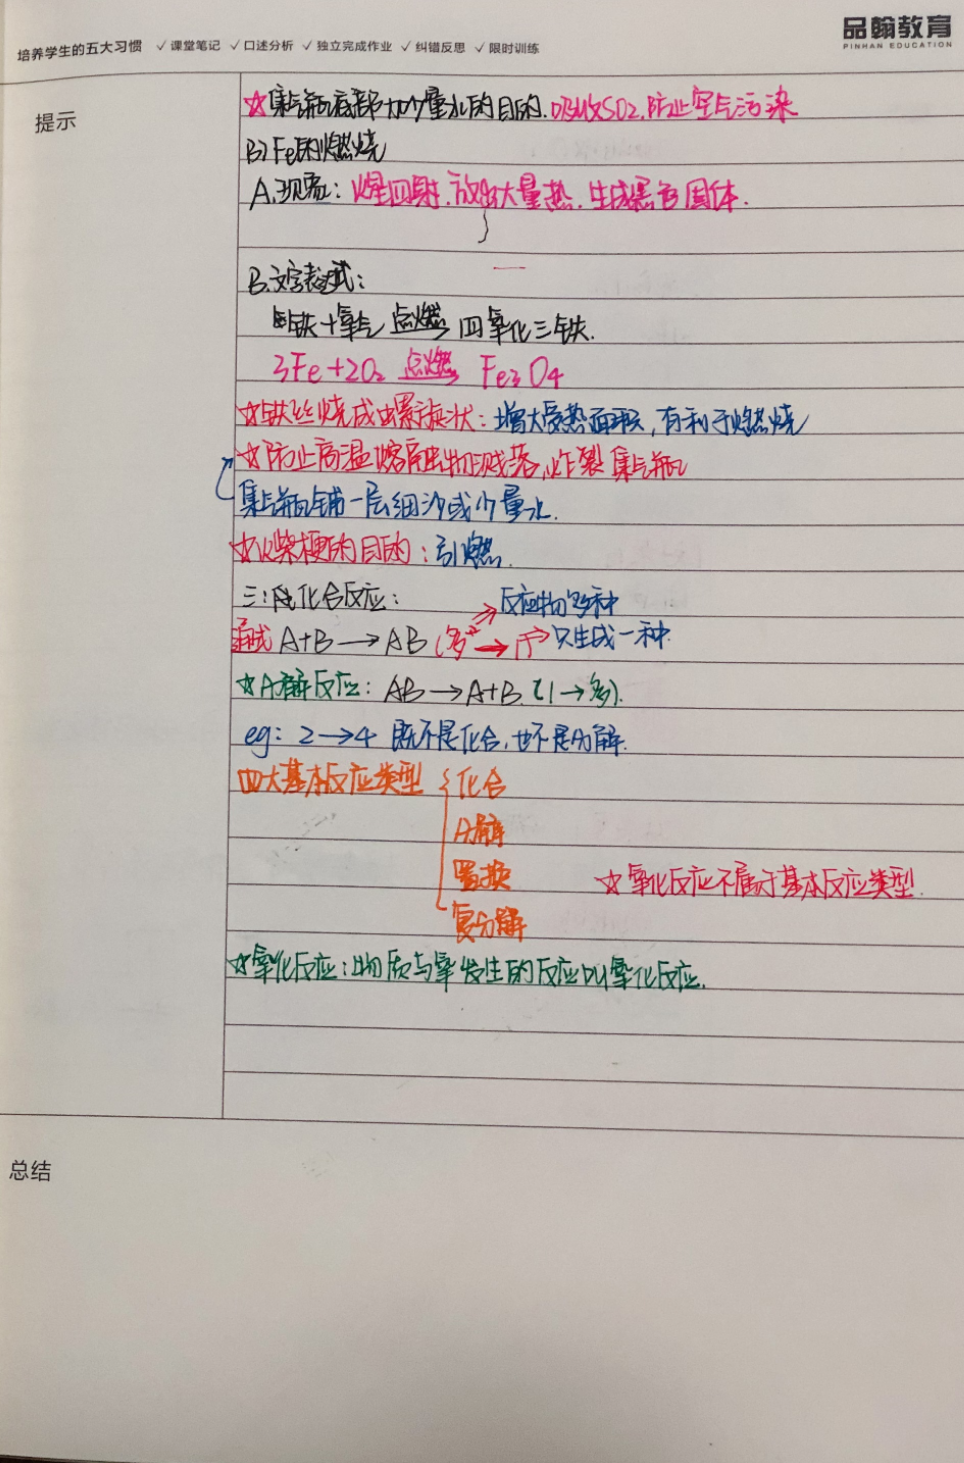 培养学生的五大习惯 ✓课堂笔记 ✓口述分析 ✓独立完成作业 ✓纠错反思 ✓限时训练
品翰教育
PINHAN EDUCATION
提示
☆集气瓶底部加少量水的目的.吸收SO2.防止空气污染
B)Fe的燃烧
A.现象：火星四射.放出大量热.生成黑色固体.
B.文字表达式：
铁+氧气 点燃→ 四氧化三铁.
3Fe+2O₂ 点燃→ Fe₃O₄
☆铁丝烧成螺旋状：增大受热面积，有利于燃烧
☆防止高温熔融物溅落,炸裂集气瓶
集气瓶铺一层细沙或少量水.
☆火柴梗的目的：引燃.
三：化合反应：
→反应物多种
A+B→AB（多→1）→只生成一种
☆分解反应：AB→A+B.（1→多）.
eg：2→4 既不是化合，也不是分解.
四大基本反应类型{化合
分解
置换
☆氧化反应不属于基本反应类型.
复分解
☆氧化反应：物质与氧发生的反应叫氧化反应.
总结